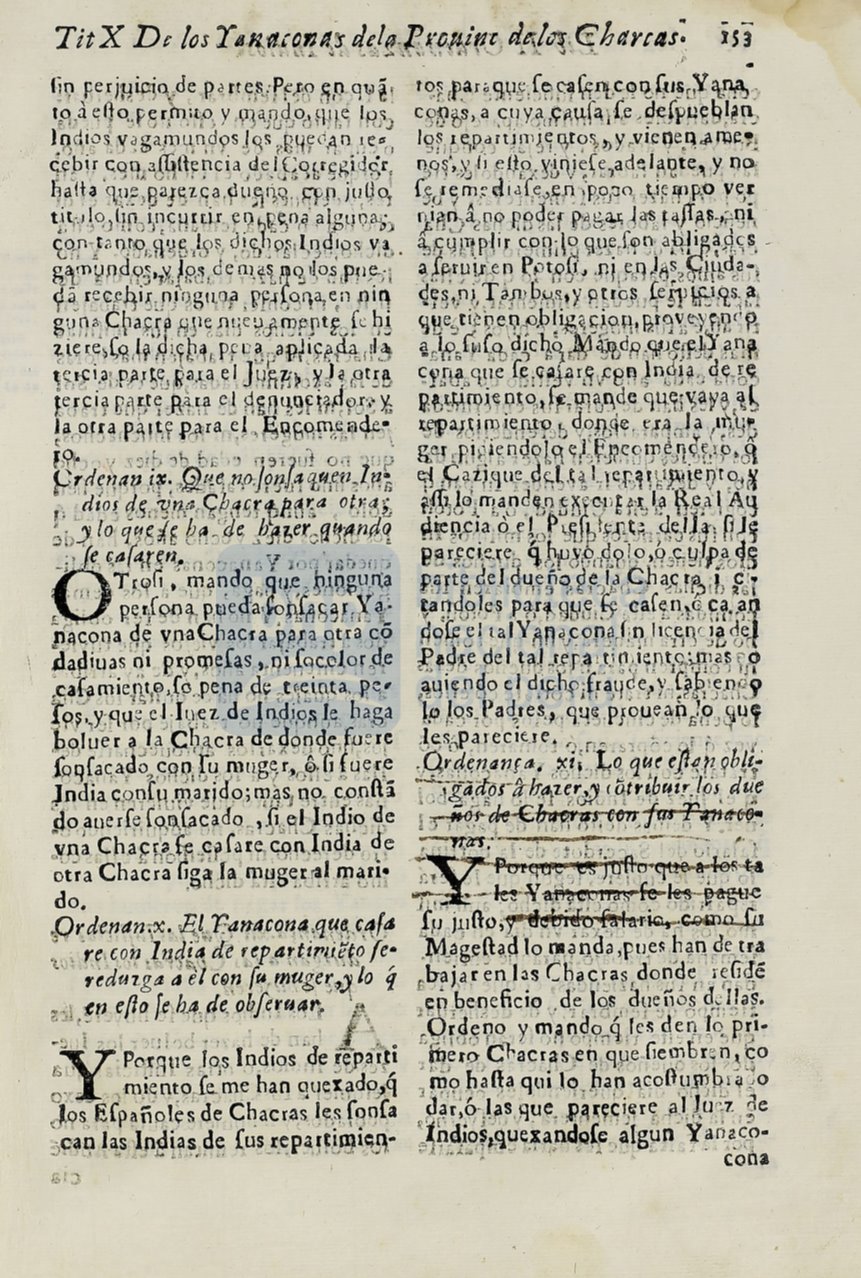 Tit X De los Yanaconas dela Prouinc de los Charcas. 153
ſin perjuicio de partes. Pero en quã
to à eſto permito y mando, que los
Indios vagamundos los puedan re-
cebir con aſsiſtencia del Corregidor
haſta que parezca dueño con juſto
titulo, ſin incurrir en pena alguna;
con tanto que los dichos Indios va
gamundos, y los demas no los pue-
dã recebir ninguna perſona en nin
guna Chacra que nueuamente ſe hi
ziere, ſo la dicha pena aplicada la
tercia parte para el Juez, y la otra
tercia parte para el denunciador, y
la otra parte para el Encomende-
ro.
Ordenan ix. Que no ſonſaquen In-
dios de vna Chacra para otra,
y lo que ſe ha de hazer quando
ſe caſaren.
OTroſi, mando que ninguna
perſona pueda ſonſacar Ya-
nacona de vna Chacra para otra cõ
dadiuas ni promeſas, ni ſocolor de
caſamiento, ſo pena de treinta pe-
ſos, y que el Iuez de Indios le haga
boluer a la Chacra de donde fuere
ſonſacado con ſu muger, ô ſi fuere
India con ſu marido; mas no conſtã
do auerſe ſonſacado, ſi el Indio de
vna Chacra ſe caſare con India de
otra Chacra ſiga la muger al mari-
do.
Ordenan. x. El Yanacona que caſa
re con India de repartimiẽto ſe-
reduzga a èl con ſu muger, y lo q́
en eſto ſe ha de obſeruar.
Y Porque los Indios de reparti
miento ſe me han quexado, q́
los Eſpañoles de Chacras les ſonſa
can las Indias de ſus repartimien-
tos para que ſe caſen con ſus Yana
conas, a cuya cauſa ſe deſpueblan
los repartimientos, y vienen a me-
nos, y ſi eſto vinieſe adelante, y no
ſe remediaſe, en poco tiempo ver
nian â no poder pagar las taſſas, ni
â cumplir con lo que ſon abligados
a ſeruir en Potoſi, ni en las Ciuda-
des, ni Tambos, y otros ſeruicios a
que tienen obligacion, proveyendo
a lo ſuſo dicho Mando que el Yana
cona que ſe caſare con India de re
partimiento, ſe mande que vaya al
repartimiento donde era la mu-
ger pidiendolo el Encomendero, ô
el Cazique del tal repartimiento, y
aſſi lo manden executar la Real Au
diencia ò el Preſidente della, ſi le
pareciere q́ huvo dolo, o culpa de
parte del dueño de la Chacra
tandoles para que ſe caſen, o caſan
doſe el tal Yanacona ſin licencia del
Padre del tal repartimiento: mas no
auiendo el dicho fraude, y ſabiendo
lo los Padres, que prouean lo que
les pareciere.
Ordenança. xi. Lo que eſtan obli-
gados â hazer, y cõtribuir los due
ños de Chacras con ſus Yanaco-
nas.
Y Porque es juſto que a los ta
les Yanaconas ſe les pague
ſu juſto, y debido ſalario, como ſu
Mageſtad lo manda, pues han de tra
bajar en las Chacras donde reſidẽ
en beneficio de los dueños dellas.
Ordeno y mando q́ les den lo pri-
mero Chacras en que ſiembren, co
mo haſta qui lo han acoſtumbrado
dar, ó las que pareciere al Juez de
Indios, quexandoſe algun Yanaco-
cona